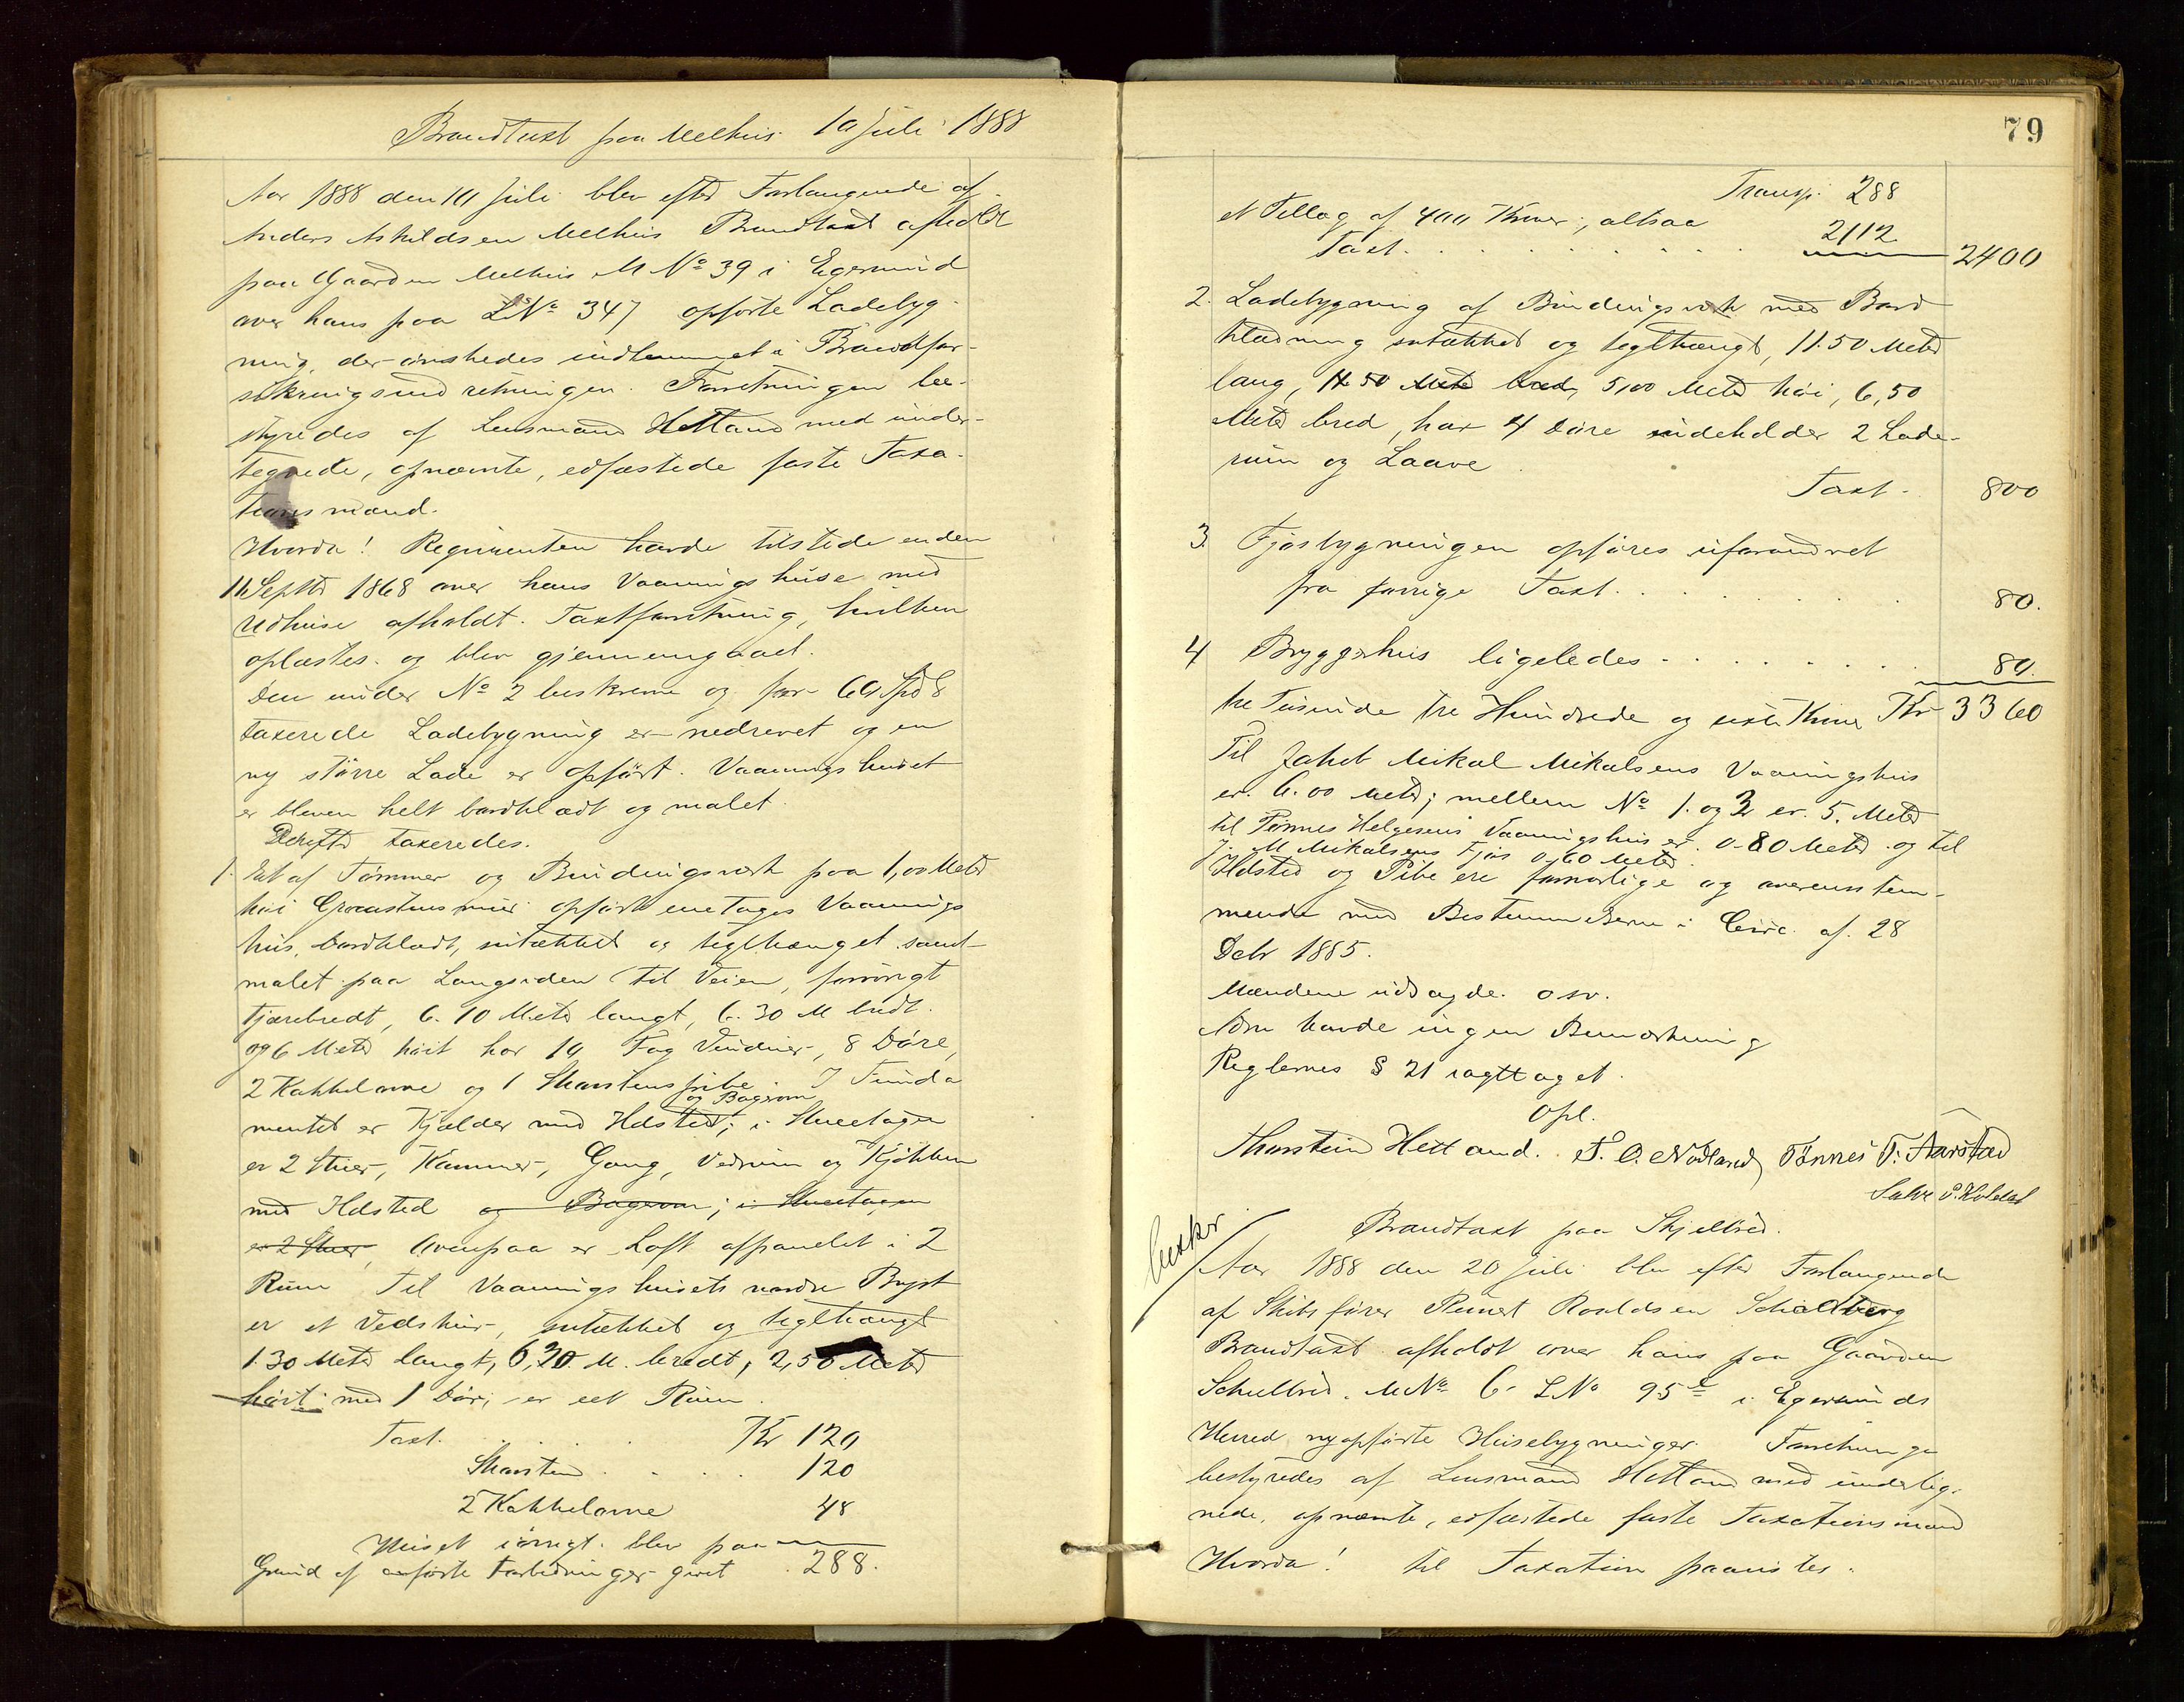 Brandtaxt paa Melhus 10 Juli 1888
Aar 1888 den 10 Juli blev efter Forlangende af
Anders Askildsen Melhus Brandtaxt afholdt
paa Gaarden Melhus M No 39 i Egersund
over hans paa LNo 347 opførte Ladebyg-
ning, der ønskedes indlemmet i Brandfor-
sikringsindretningen. Forretningen be-
styredes af Lensmand Hetland med under-
tegnede, opnævnte, edfæstede faste Taxa-
tionsmænd.
Hvorda! Reqvirenten havde tilstede en den
11 Septbr 1868 over hans Vaaningshuse med
Udhuse afholdt Taxtforretning, hvilken
oplæstes og blev gjennemgaaet.
Den under No 2 beskrevne og for 60 Spd
taxerede Ladebygning er nedrevet og en
ny større Lade er opført. Vaaningshuset
er bleven helt bordklædt og malet.
Derefter taxeredes.
1. Et af Tømmer og Bindingsværk paa 1,00 Meter
høi Graastensmur opført eneetages Vaanings
hus, bordklædt, sutækket og teglhænget samt
malet paa Langsiden til Veien, forøvrigt
tjærebredt, 6.10 Meter langt, 6.30 M bredt
og 6 Meter høit har 10 Fag Vinduer, 8 Døre,
2 Kakkelovne og 1 Skorstenspibe. I Funda
og Bagerovn
mentet er Kjælder med Ildsted; i Stueetagen
er 2 Stuer, Kammer, Gang, Vedrum og Kjøkken
med Ildsted og Bagerovn; i Stueetagen
er 2 Stuer, Ovenpaa er Loft afpanelet i 2
Rum. Til Vaaningshusets nordre Bryst
er et Vedskur, sutækket og teglhængt
1.30 Meter langt, 6,30 M. bredt, 2,50 Meter
høit med 1 Dør; er eet Rum.
Taxt. . . . . Kr 120
Skorsten . . . . 120
2 Kakkelovne 48
Huset iøvrigt blev paa
Grund af anførte Forbedringer givet 288.
79
Transp. 288
et Tillæg af 400 Kroner; altsaa 2112
Taxt. . . . . . . . . 2400
2. Ladebygning af Bindingsværk med Bord
klædning sutækket og teglhængt, 11.50 Meter
lang, 11.50 Meter bred, 5,00 Meter høi, 6,50
Meter bred, har 4 Døre indeholder 2 Lade-
rum og Laave
Taxt. 800
3. Fjøsbygningen opføres uforandret
fra forrige Taxt. . . . . . . . 80.
4 Bryggerhus ligeledes . . . . . . . 80.
tre Tusinde tre Hundrede og sexti Kroner Kr 3360
Til Jakob Mikal Mikalsens Vaaningshus
er 6.00 Meter; mellem No 1. og 3 er 5. Meter
til Tønnes Helgesens Vaaningshus er 0.80 Meter og til
J. M Mikalsens Fjøs 0,60 Meter.
Ildsted og Pibe ere forsvarlige og overensstem-
mende med Bestemmelserne i Circ. af 28
Debr 1885.
Mændene udsagde osv.
Adm havde ingen Bemærkning
Reglernes § 21 iagttaget.
Opl.
Thorstein Hetland. S. O. Nodland, Tønnes T. Aarstad
Salve
Brandtaxt paa Skjelbred.
Aar 1888 den 20 Juli blev efter Forlangende
af Skibsfører Reinert Roaldsen Schælberg
Brandtaxt afholdt over hans paa Gaarden
Schelbred MNo 6 LNo 95 i Egersunds
Herred nyopførte Husebygninger. Forretningen
bestyredes af Lensmand Hetland med underteg-
nede, opnævnte, edfæstede faste Taxationsmænd
Hvorda! til Taxation paavistes.